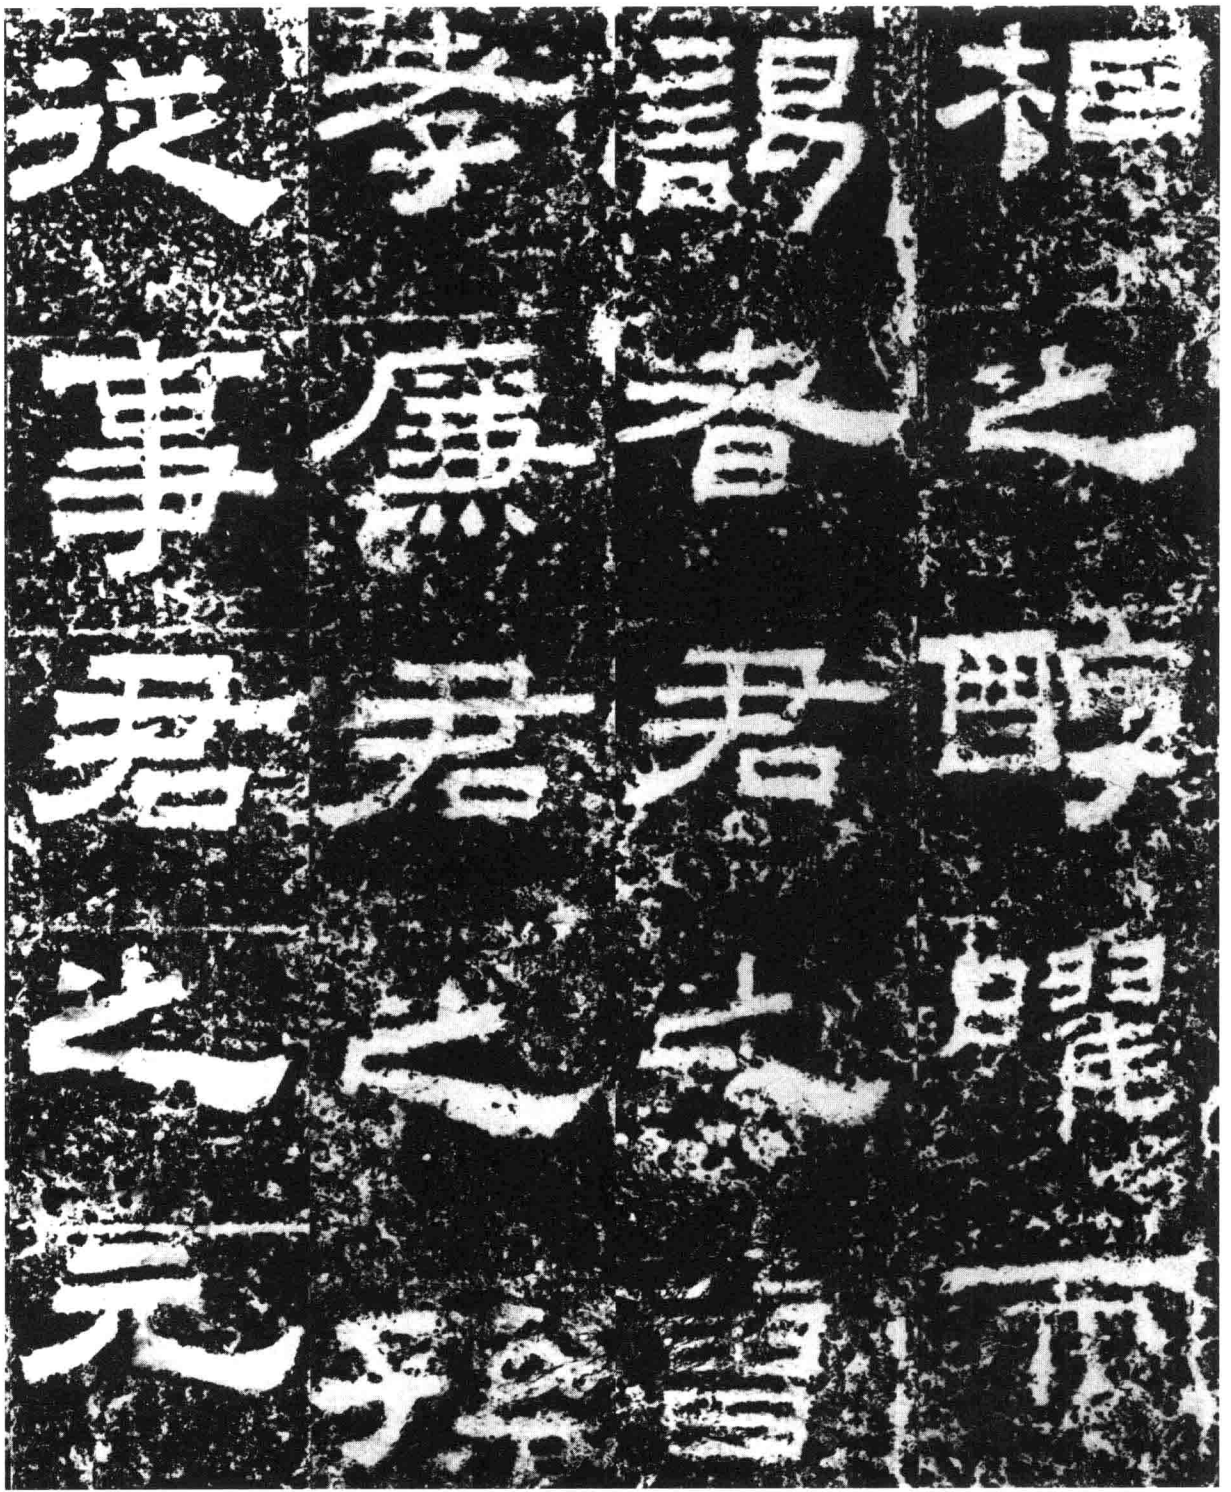 相之醇曜而
謁者君之曾
孝廉君之孫
從事君之元